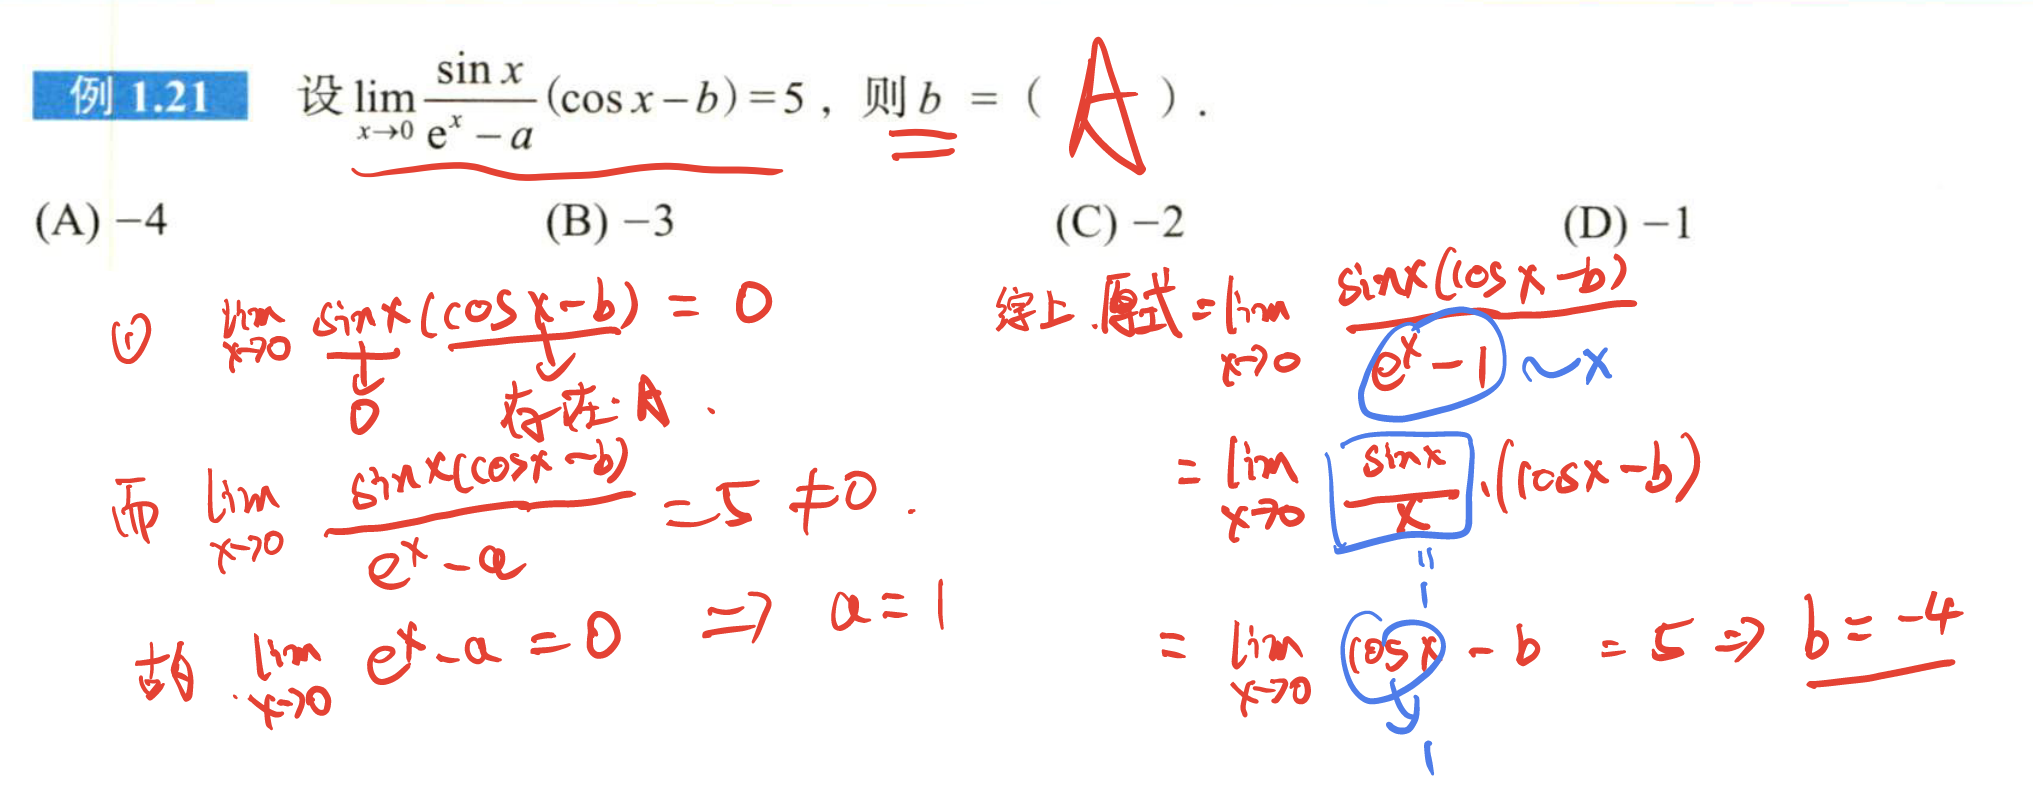 例 1.21 设 lim x→0 sin x / (e^x − a) (cos x − b) = 5 , 则 b = ( A ) .
(A) −4 (B) −3 (C) −2 (D) −1
① lim x→0 sinx (cosx − b) = 0
0 存在: A .
而 lim x→0 sinx(cosx − b) / (e^x − a) = 5 ≠ 0 .
故 lim x→0 e^x − a = 0 ⇒ a = 1
综上. 原式 = lim x→0 sinx(cosx − b) / (e^x − 1) ~ x
= lim x→0 sinx / x · (cosx − b)
= 1
= lim x→0 cosx − b = 5 ⇒ b = −4
1